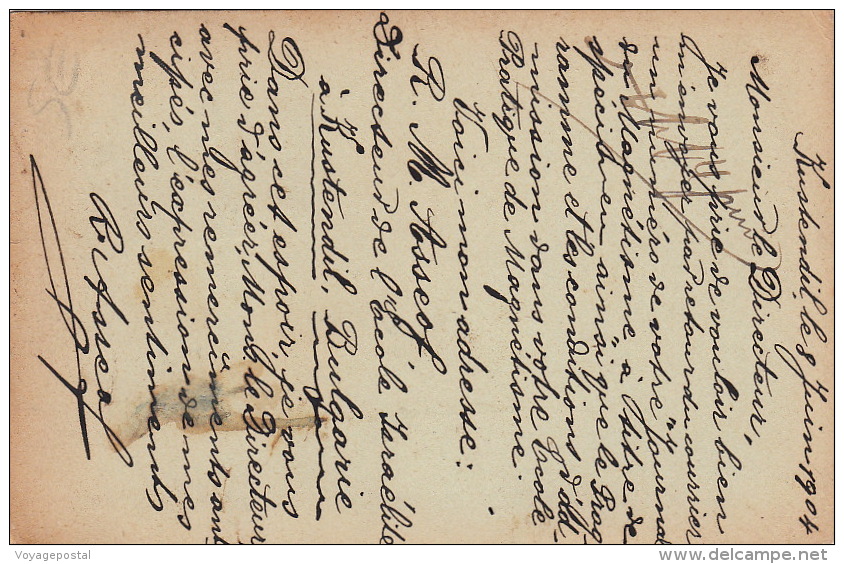 Kustendil, le 8 Juin 1904
Monsieur le Directeur,
Je vous prie de vouloir bien
m'envoyer par retour du courrier
un numéro de votre "Journal
du Magnétisme, à titre de
spécimen ainsi que le Prog-
ramme et les conditions d'ad-
mission dans votre Ecole
Pratique de Magnétisme.
Voici mon adresse:
R. M. Asseof
Directeur de l'Ecole Israélite
à Kustendil, Bulgarie
Dans cet espoir je vous
prie d'agréer, Mons. le Directeur
avec mes remerciements anti
cipés, l'expression de mes
meilleurs sentiments
R. Asseof
Voyagepostal
delcampe.net